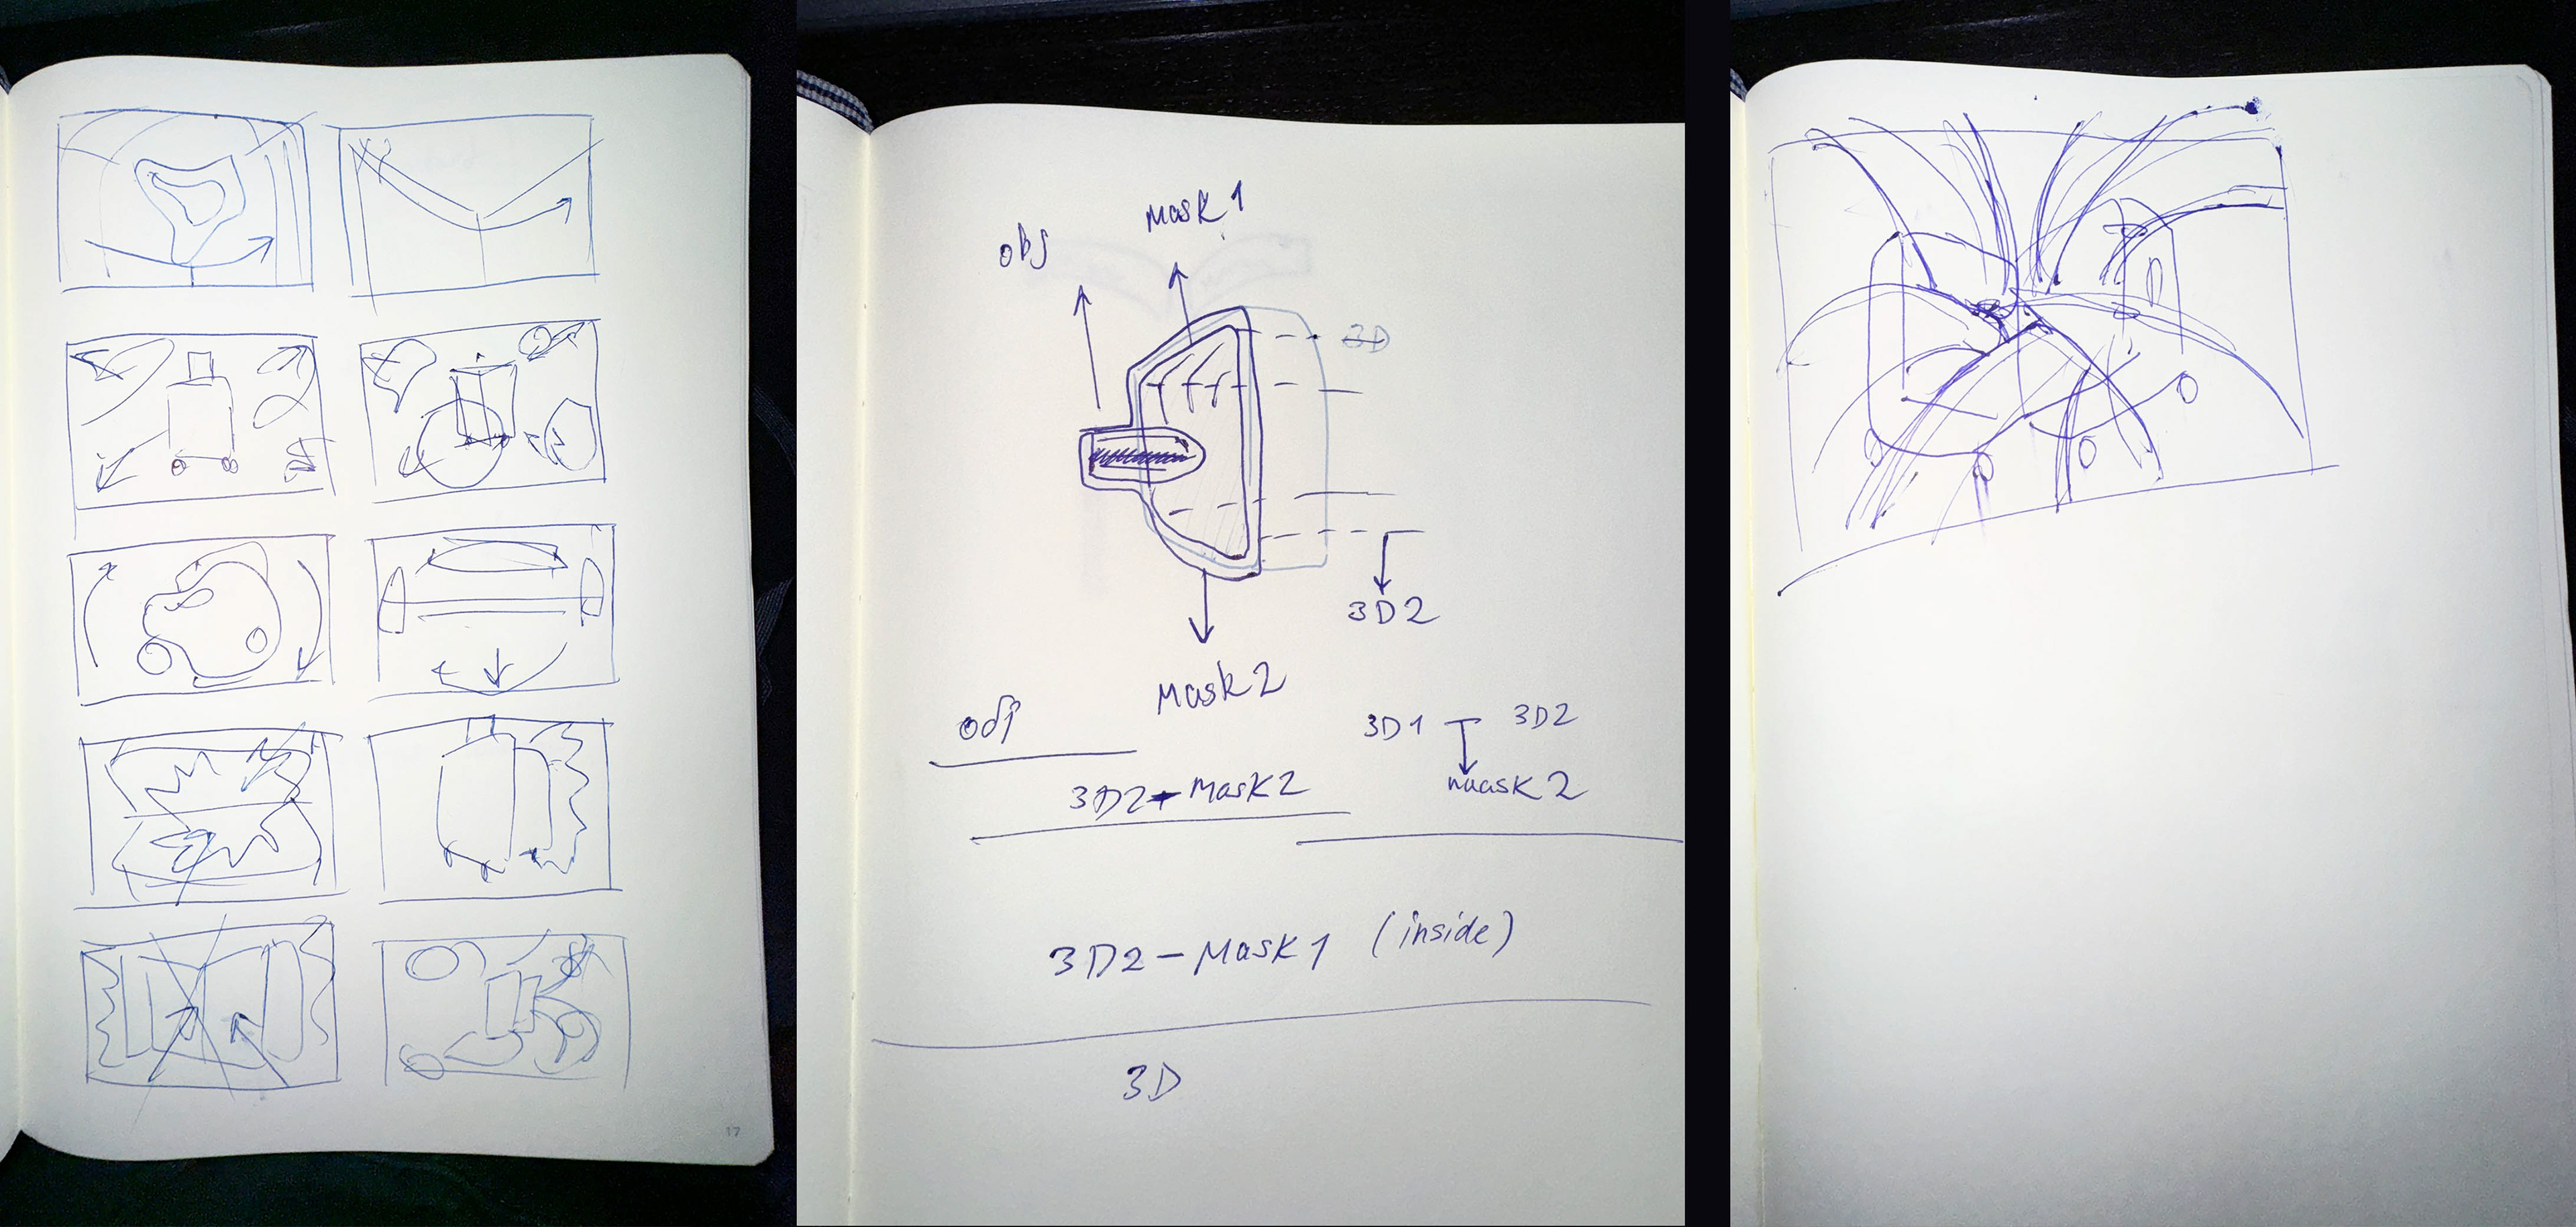 17
Mask 1
obj
3D
3D2
Mask 2
obj
3D1 3D2
3D2+Mask2
maask 2
3D2-Mask1 (inside)
3D